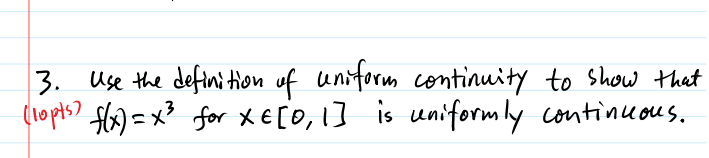 3. Use the definition of uniform continuity to show that
(10pts) f(x) = x³ for x ∈ [0, 1] is uniformly continuous.